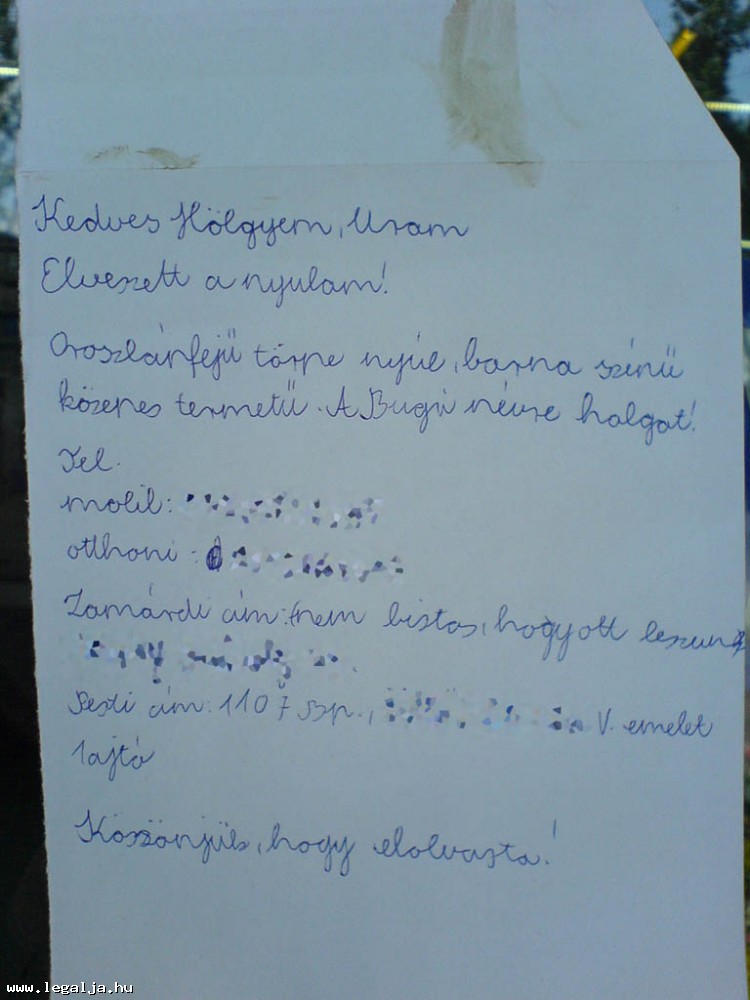 Kedves Hölgyem, Uram
Elveszett a nyulam!
Oroszlánfejű törpe nyúl, barna színű
közepes termetű. A Bugi névre halgat!
Tel.
mobil:
otthoni:
Zamárdi cím: (nem biztos, hogy ott leszünk
Pesti cím: 1107 Bp., V. emelet
1 ajtó
Köszönjük, hogy elolvasta!
www.legalja.hu